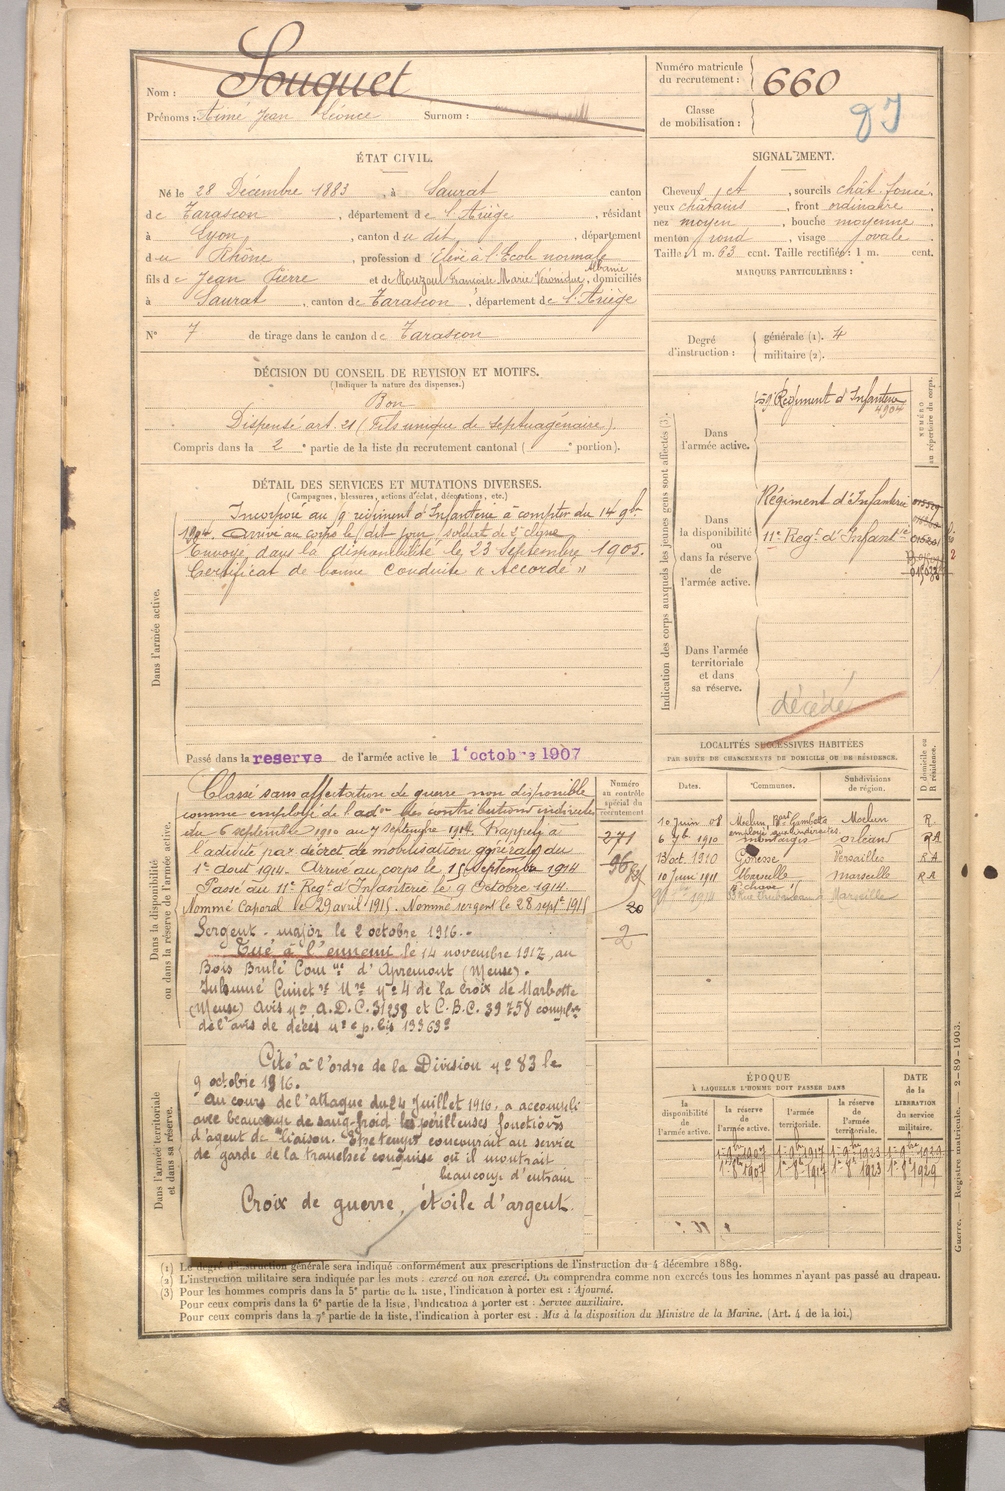 Nom : Souquet
Prénoms : Aimé Jean Léonce Surnom :
Numéro matricule
du recrutement : 660
Classe
de mobilisation :
ÉTAT CIVIL.
Né le 28 Décembre 1883, à Saurat canton
de Tarascon, département de l'Ariège, résidant
à Lyon, canton du dit, département
du Rhône, profession d'élève à l'Ecole normale
fils de Jean Pierre et de Rouzoul Françoise Marie Véronique Albanie, domiciliés
à Saurat, canton de Tarascon, département de l'Ariège
N° 7 de tirage dans le canton de Tarascon
SIGNALEMENT.
Cheveux et, sourcils chât. foncé.
yeux châtains, front ordinaire
nez moyen, bouche moyenne
menton rond, visage ovale
Taille : 1 m. 63 cent. Taille rectifiée : 1 m. cent.
MARQUES PARTICULIÈRES :
Degré
d'instruction :
générale (1). 4
militaire (2).
DÉCISION DU CONSEIL DE REVISION ET MOTIFS.
(Indiquer la nature des dispenses.)
Bon
Dispensé art. 21 (Fils unique de septuagénaire).
Compris dans la 2e partie de la liste du recrutement cantonal ( e portion).
DÉTAIL DES SERVICES ET MUTATIONS DIVERSES.
(Campagnes, blessures, actions d'éclat, décorations, etc.)
Dans l'armée active.
Incorporé au régiment d'Infanterie à compter du 14 9bre
1904. Arrivé au corps le dit jour, soldat de 2e classe
Envoyé dans la disponibilité le 23 Septembre 1905.
Certificat de bonne conduite « Accordé »
Passé dans la reserve de l'armée active le 1 octobre 1907
Indication des corps auxquels les jeunes gens sont affectés (3).
NUMÉRO
au répertoire du corps.
Dans
l'armée active.
Régiment d'Infanterie
Dans
la disponibilité
ou
dans la réserve
de
l'armée active.
Régiment d'Infanterie
11e Regt d'Infantie
Dans l'armée
territoriale
et dans
sa réserve.
décédé
Dans la disponibilité
ou dans la réserve de l'armée active.
Classé sans affectation de guerre non disponible
comme employé de l'adon des contributions indirectes
du 6 septembre 1910 au 7 septembre 1914. Rappelé à
l'activité par décret de mobilisation générale du
1er aout 1914. Arrivé au corps le 15 septembre 1914
Passé au 11e Regt d'Infanterie le 9 Octobre 1914.
Nommé Caporal le 29 avril 1915. Nommé sergent le 28 septe 1915
Sergent-major le 2 octobre 1916.
Tué à l'ennemi le 14 novembre 1917, au
Bois Brulé Comune d'Apremont (Meuse).
Inhumé Cimetre Mre no 4 de la Croix de Marbotte
(Meuse) Avis no A.D.C. 31238 et C.B.C. 39758
de l'avis de décès
Numéro
au contrôle
spécial du
recrutement
271
20
2
LOCALITÉS SUCCESSIVES HABITÉES
PAR SUITE DU CHANGEMENTS DE DOMICILE OU DE RÉSIDENCE.
Dates. Communes. Subdivisions de région. D domicile ou R résidence.
10 juin 08 Melun, Bard Gambetta Melun R.
6 9bre 1910 montargis orléans RA
13 oct. 1910 Gonesse Versailles RA
10 juin 1911 Marseille marseille RA
1914 Marseille
Dans l'armée territoriale
et dans sa réserve.
Cité à l'ordre de la Division no 83 le
9 octobre 1916.
Au cours de l'attaque du 24 Juillet 1916, a accompli
avec beaucoup de sang-froid les périlleuses fonctions
d'agent de liaison. concourait au service
de garde de la tranchée conquise où il montrait
beaucoup d'entrain
Croix de guerre, étoile d'argent.
ÉPOQUE
À LAQUELLE L'HOMME DOIT PASSER DANS
la
disponibilité
de
l'armée active.
la réserve
de
l'armée active.
l'armée
territoriale.
la réserve
de
l'armée
territoriale.
DATE
de la
LIBÉRATION
du service
militaire.
(1) Le degré d'instruction générale sera indiqué conformément aux prescriptions de l'instruction du 4 décembre 1889.
(2) L'instruction militaire sera indiquée par les mots : exercé ou non exercé. On comprendra comme non exercés tous les hommes n'ayant pas passé au drapeau.
(3) Pour les hommes compris dans la 5e partie de la liste, l'indication à porter est : Ajourné.
Pour ceux compris dans la 6e partie de la liste, l'indication à porter est : Service auxiliaire.
Pour ceux compris dans la 7e partie de la liste, l'indication à porter est : Mis à la disposition du Ministre de la Marine. (Art. 4 de la loi.)
Guerre. — Registre matricule. — 2-89-1903.